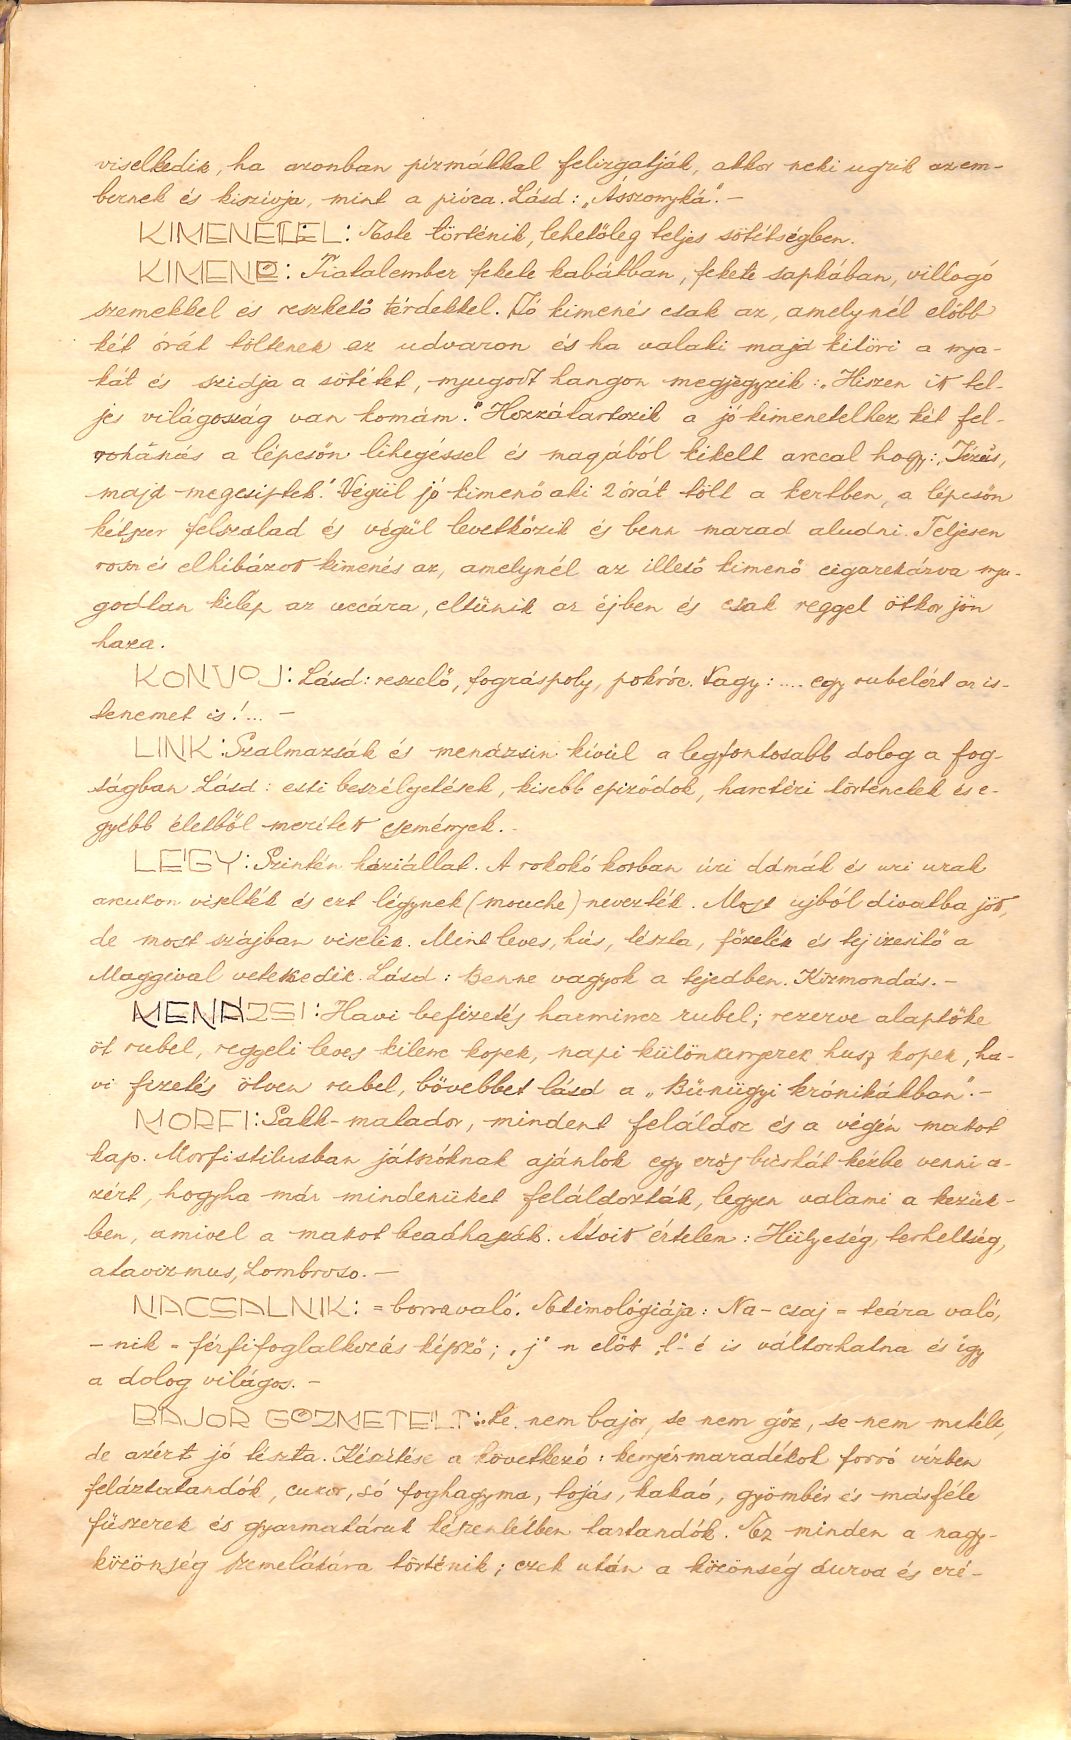 viselkedik, ha azonban pizmákkal felizgatják, akkor neki ugrik az em-
bernek és kiszívja, mint a pióca. Lásd: „Asszonyká". –
KIMENETEL: Este történik, lehetőleg teljes sötétségben.
KIMENŐ: Fiatalember fekete kabátban, fekete sapkában, villogó
szemekkel és reszkető térdekkel. Jó kimenés csak az, amelynél előbb
két órát töltenek az udvaron és ha valaki majd kitöri a nya-
kát és szidja a sötétet, nyugodt hangon megjegyzik: „Hiszen itt tel-
jes világosság van komám." Hozzátartozik a jó kimenetelhez két fel-
rohanás a lépcsőn lihegéssel és magából kikelt arccal hogy: „Jézus,
majd megcsiptek!" Végül jó kimenő aki 2 órát tölt a kertben, a lépcsőn
kétszer felszalad és végül levetkőzik és benn marad aludni. Teljesen
rossz és elhibázott kimenés az, amelynél az illető kimenő cigarettázva nyu-
godtan kilép az uccára, eltünik az éjben és csak reggel ötkor jön
haza.
KONVOJ: Lásd: reszelő, fográspoly, pokróc. Vagy: .... egy rubelért az is-
tenemet is! ... –
LINK: Szalmazsák és menázsin kívül a legfontosabb dolog a fog-
ságban. Lásd: esti beszélgetések, kisebb epizódok, harctéri történetek és e-
gyébb életből merített események. –
LÉGY: Szintén háziállat. A rokokó korban úri dámák és uri urak
arcukon viselték és ezt légynek (mouche) nevezték. Most ujból divatba jött,
de most szájban viselik. Mint leves, hús, tészta, főzelék és tej izesítő a
Maggival vetekedik. Lásd: Benne vagyok a tejedben. Közmondás. –
MENÁZSI: Havi befizetés harmincz rubel; rezerve alaptőke
öt rubel, reggeli leves kilenc kopek, napi különkenyerek husz kopek, ha-
vi fizetés ötven rubel, bővebbet lásd a „Bűnügyi krónikákban". –
MORFI: Sakk-matador, mindent feláldoz és a végén matot
kap. Morfistilusban játszóknak ajánlok egy erős bicskát kézbe venni a-
zért, hogyha már mindenüket feláldozták, legyen valami a kezük-
ben, amivel a matot beadhassák. Átvitt értelem: Hülyeség, terheltség,
atavizmus, Lombroso. –
NACSALNIK: = borravaló. Etimológiája: Na – csaj = teára való,
– nik = férfifoglalkozás képző; „j" n előtt „l"-é is változhatna és így
a dolog világos. –
BAJOR GŐZMETÉLT: Se nem bajor, se nem gőz, se nem metélt,
de azért jó tészta. Készítése a következő: kenyérmaradékok forró vízben
feláztatandók, cukor, só foghagyma, tojás, kakaó, gyömbér és másféle
fűszerek és gyarmatáruk készenlétben tartandók. Ez minden a nagy-
közönség szemeláttára történik; ezek után a közönség durva és eré-